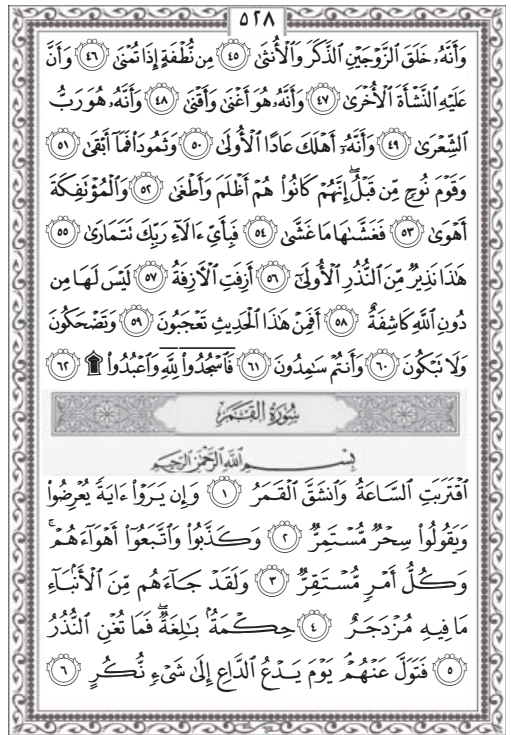 ٥٢٨
وَأَنَّهُۥ خَلَقَ ٱلزَّوْجَيْنِ ٱلذَّكَرَ وَٱلْأُنثَىٰ ٤٥ مِن نُّطْفَةٍ إِذَا تُمْنَىٰ ٤٦ وَأَنَّ
عَلَيْهِ ٱلنَّشْأَةَ ٱلْأُخْرَىٰ ٤٧ وَأَنَّهُۥ هُوَ أَغْنَىٰ وَأَقْنَىٰ ٤٨ وَأَنَّهُۥ هُوَ رَبُّ
ٱلشِّعْرَىٰ ٤٩ وَأَنَّهُۥٓ أَهْلَكَ عَادًا ٱلْأُولَىٰ ٥٠ وَثَمُودَا۟ فَمَآ أَبْقَىٰ ٥١
وَقَوْمَ نُوحٍ مِّن قَبْلُ ۖ إِنَّهُمْ كَانُوا۟ هُمْ أَظْلَمَ وَأَطْغَىٰ ٥٢ وَٱلْمُؤْتَفِكَةَ
أَهْوَىٰ ٥٣ فَغَشَّىٰهَا مَا غَشَّىٰ ٥٤ فَبِأَىِّ ءَالَآءِ رَبِّكَ تَتَمَارَىٰ ٥٥
هَٰذَا نَذِيرٌ مِّنَ ٱلنُّذُرِ ٱلْأُولَىٰٓ ٥٦ أَزِفَتِ ٱلْـَٔازِفَةُ ٥٧ لَيْسَ لَهَا مِن
دُونِ ٱللَّهِ كَاشِفَةٌ ٥٨ أَفَمِنْ هَٰذَا ٱلْحَدِيثِ تَعْجَبُونَ ٥٩ وَتَضْحَكُونَ
وَلَا تَبْكُونَ ٦٠ وَأَنتُمْ سَٰمِدُونَ ٦١ فَٱسْجُدُوا۟ لِلَّهِ وَٱعْبُدُوا۟ ۩ ٦٢
سُورَةُ القَمَر
بِسْمِ ٱللَّهِ ٱلرَّحْمَٰنِ ٱلرَّحِيمِ
ٱقْتَرَبَتِ ٱلسَّاعَةُ وَٱنشَقَّ ٱلْقَمَرُ ١ وَإِن يَرَوْا۟ ءَايَةً يُعْرِضُوا۟
وَيَقُولُوا۟ سِحْرٌ مُّسْتَمِرٌّ ٢ وَكَذَّبُوا۟ وَٱتَّبَعُوٓا۟ أَهْوَآءَهُمْ ۚ
وَكُلُّ أَمْرٍ مُّسْتَقِرٌّ ٣ وَلَقَدْ جَآءَهُم مِّنَ ٱلْأَنۢبَآءِ
مَا فِيهِ مُزْدَجَرٌ ٤ حِكْمَةٌۢ بَٰلِغَةٌ ۖ فَمَا تُغْنِ ٱلنُّذُرُ
٥ فَتَوَلَّ عَنْهُمْ ۘ يَوْمَ يَدْعُ ٱلدَّاعِ إِلَىٰ شَىْءٍ نُّكُرٍ ٦